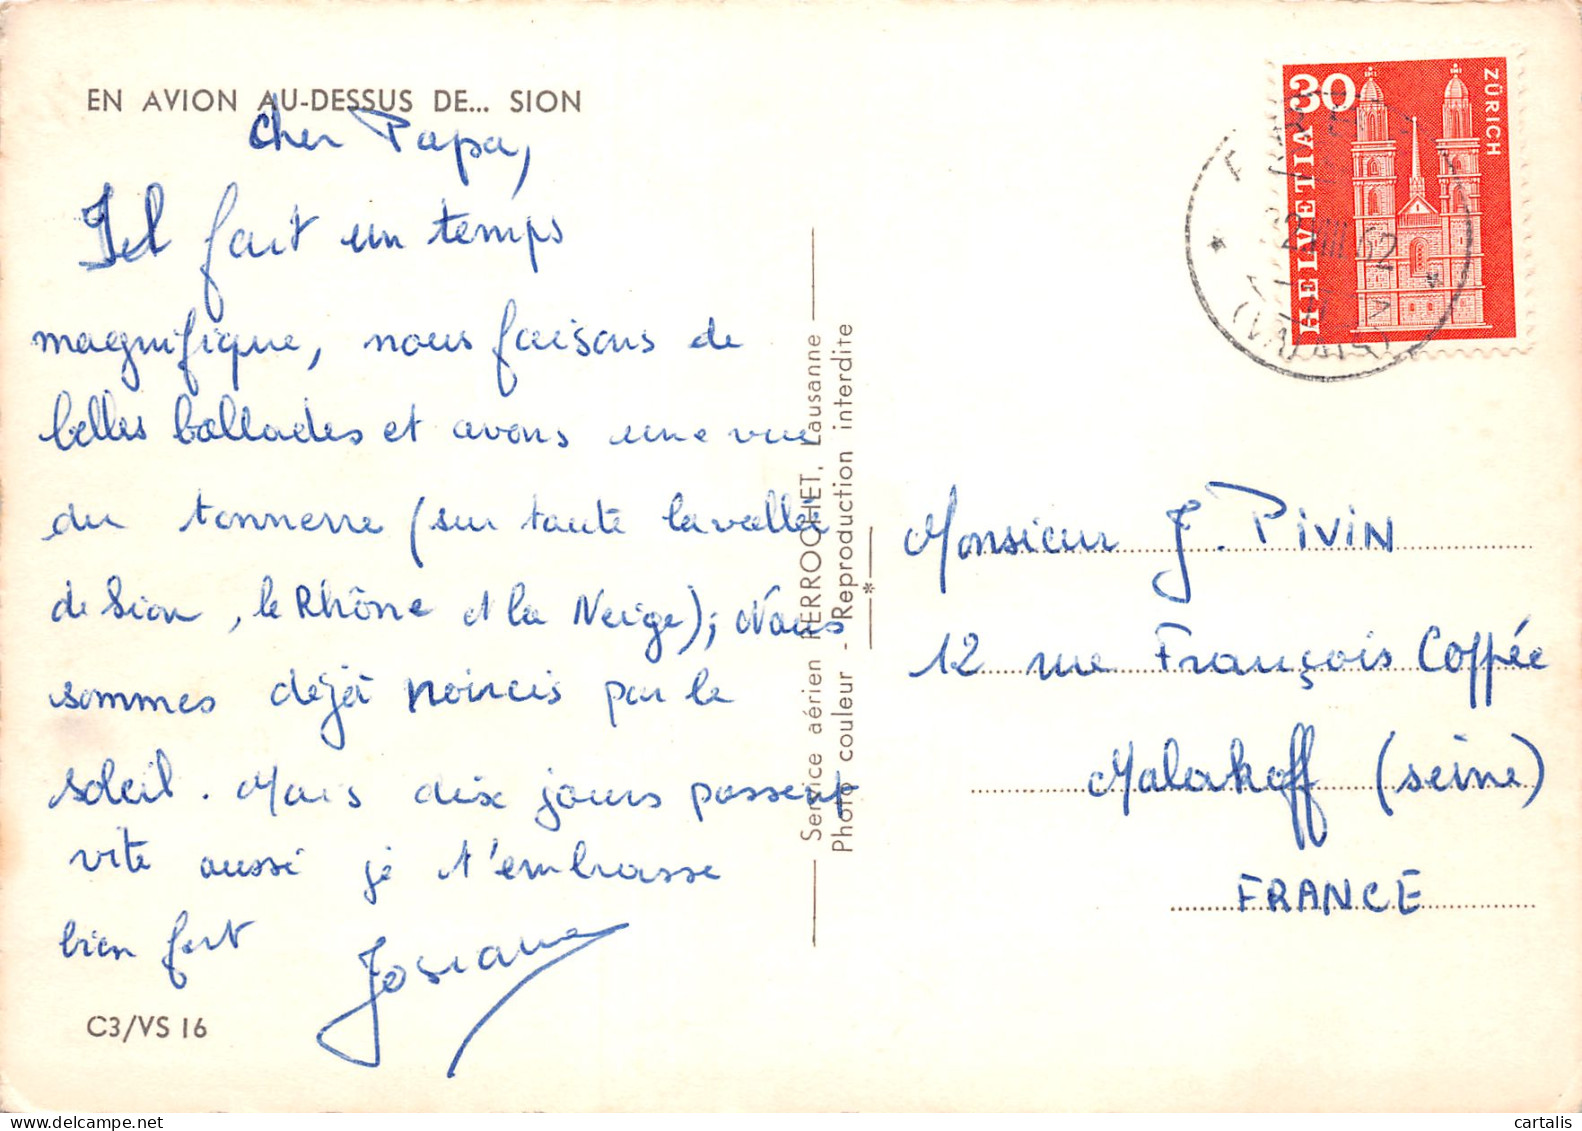 EN AVION AU-DESSUS DE... SION
Cher Papa,
Il fait un temps
magnifique, nous faisons de
belles ballades et avons une vue
du tonnerre (sur toute la vallée
de Sion, le Rhône et la Neige); Nous
sommes déjà noircis par le
soleil. Mais dix jours passent
vite aussi je t'embrasse
bien fort
Josiane
C3/VS 16
Service aérien PERROCHET, Lausanne
Photo couleur - Reproduction interdite
30
HELVETIA
ZÜRICH
VIII 62
(VALAIS)
Monsieur J. PIVIN
12 rue François Coppée
Malakoff (seine)
FRANCE
cartalis